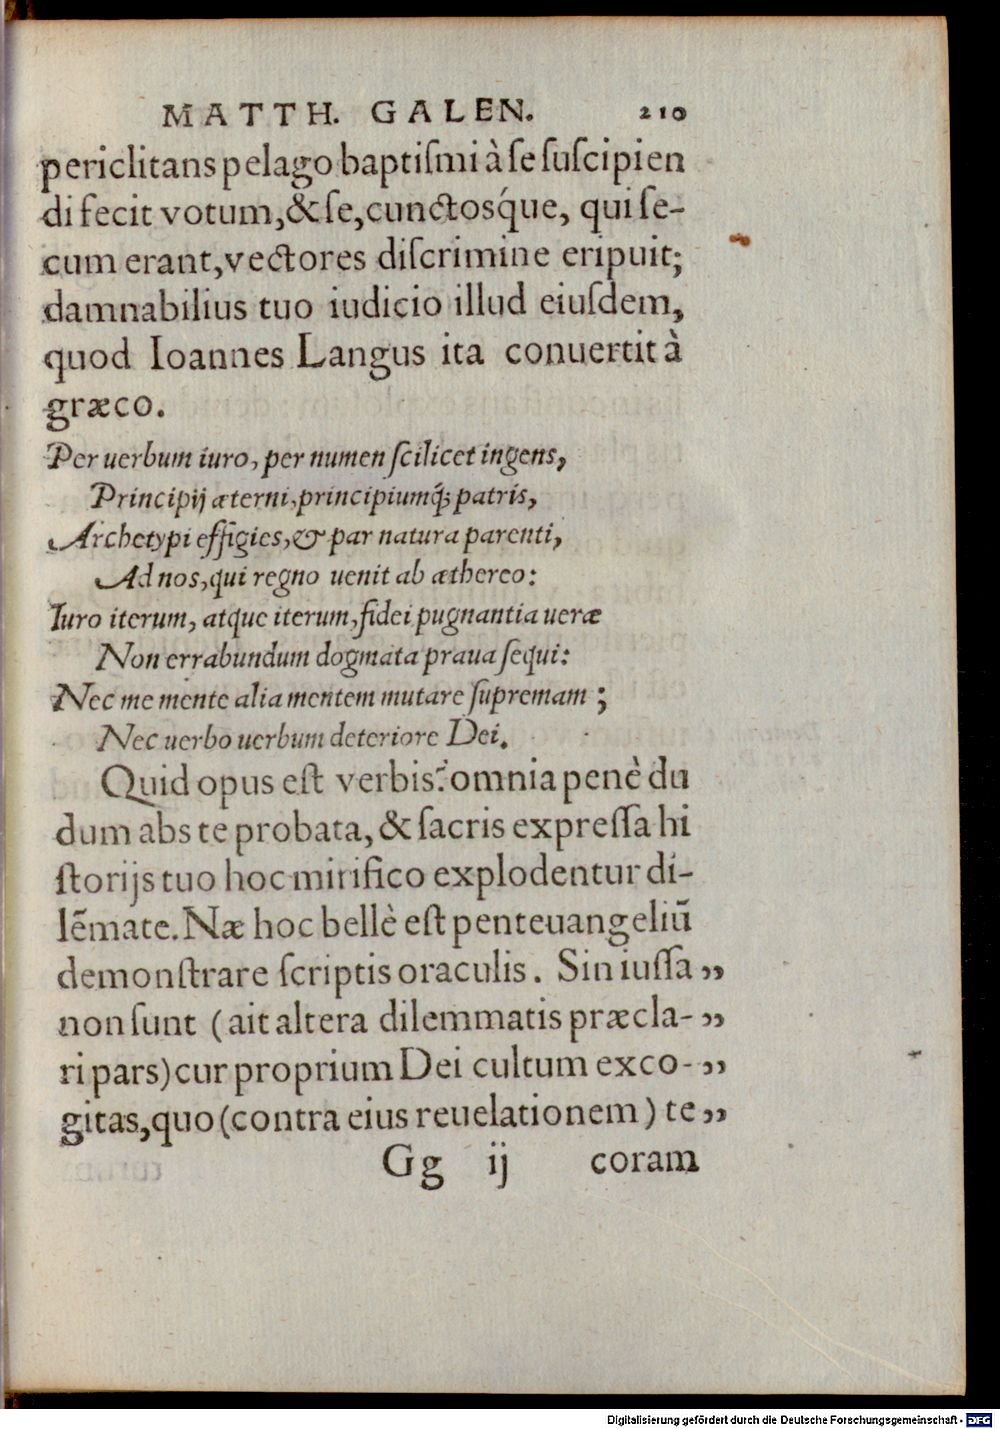 MATTH. GALEN. 210
periclitans pelago baptiſmi à ſe ſuſcipien
di fecit votum, & ſe, cunctosq́ue, qui ſe-
cum erant, vectores diſcrimine eripuit;
damnabilius tuo iudicio illud eiuſdem,
quod Ioannes Langus ita conuertit à
græco.
Per uerbum iuro, per numen ſcilicet ingens,
Principij æterni, principiumq́; patris,
Archetypi effigies, & par natura parenti,
Ad nos, qui regno uenit ab æthereo:
Iuro iterum, atque iterum, fidei pugnantia ueræ
Non errabundum dogmata praua ſequi:
Nec me mente alia mentem mutare ſupremam;
Nec uerbo uerbum deteriore Dei.
Quid opus eſt verbis? omnia penè du
dum abs te probata, & ſacris expreſſa hi
ſtorijs tuo hoc mirifico explodentur di-
lẽmate. Næ hoc bellè eſt penteuangeliũ
demonſtrare ſcriptis oraculis. Sin iuſſa „
non ſunt (ait altera dilemmatis præcla- „
ri pars) cur proprium Dei cultum exco- „
gitas, quo (contra eius reuelationem) te „
Gg ij coram
Digitalisierung gefördert durch die Deutsche Forschungsgemeinschaft - DFG